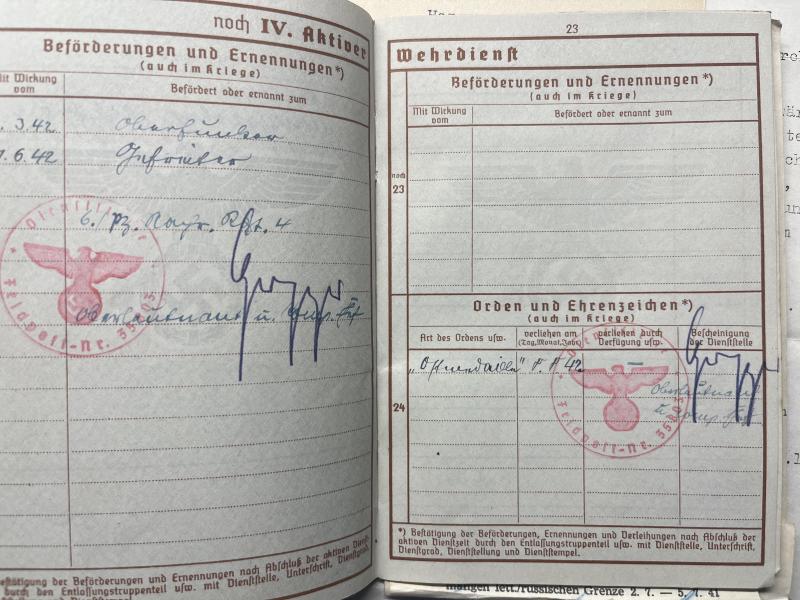 noch IV. Aktiver
Beförderungen und Ernennungen*)
(auch im Kriege)
Mit Wirkung
vom
Befördert oder ernannt zum
.3.42 Oberfunker
1.6.42 Gefreiter
6./Pz. Nachr. Rgt. 4
Dienststelle
Feldpost-Nr. 35803
Oberleutnant u. Komp. Fhr.
Bestätigung der Beförderungen und Ernennungen nach Abschluß der aktiven Dienst-
durch den Entlassungstruppenteil usw. mit Dienststelle, Unterschrift,
und Dienststempel.
23
Wehrdienst
Beförderungen und Ernennungen*)
(auch im Kriege)
Mit Wirkung
vom
Befördert oder ernannt zum
noch
23
Orden und Ehrenzeichen*)
(auch im Kriege)
Art des Ordens usw.
verliehen am
(Tag, Monat, Jahr)
verliehen durch
Verfügung usw.
Bescheinigung
der Dienststelle
„Ostmedaille" 42
24
Oberleutnant
u. Komp. Fhr.
Feldpost-Nr. 35803
*) Bestätigung der Beförderungen, Ernennungen und Verleihungen nach Abschluß der
aktiven Dienstzeit durch den Entlassungstruppenteil usw. mit Dienststelle, Unterschrift,
Dienstgrad, Dienststellung und Dienststempel.
lett./russischen Grenze 2. 7. — 5. 7. 41